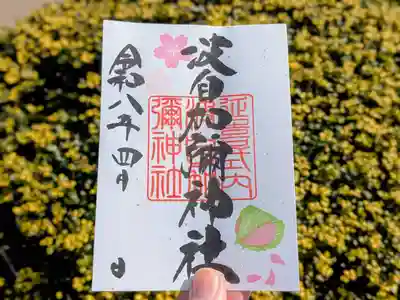 延喜式内
波自加彌神社
波自加彌神社
令和八年四月
日